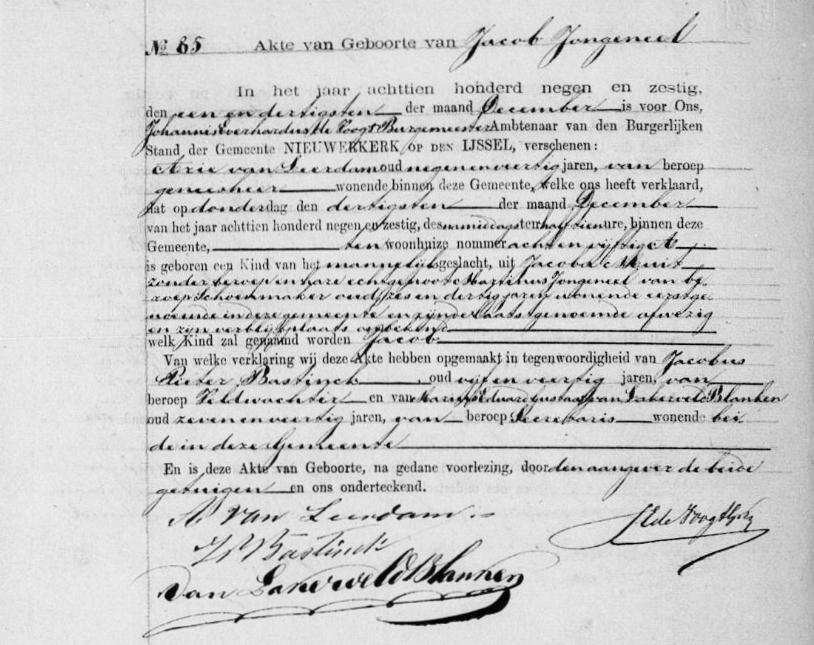 No 85 Akte van Geboorte van Jacob Jongeneel
In het jaar achttien honderd negen en zestig,
den een en dertigsten der maand December is voor Ons,
Johannis Everhardus de Voogt Burgemeester Ambtenaar van den Burgerlijken
Stand der Gemeente NIEUWERKERK OP DEN IJSSEL, verschenen:
Arie van Leerdam oud negen en veertig jaren, van beroep
geneesheer wonende binnen deze Gemeente, welke ons heeft verklaard,
dat op donderdag den dertigsten der maand December
van het jaar achttien honderd negen en zestig, des namiddags ten half tien ure, binnen deze
Gemeente, ten woonhuize nommer acht en vijftig A
is geboren een Kind van het mannelijk geslacht, uit Jacoba
zonder beroep en hare echtgenoot Martinus Jongeneel van be-
roep Schoenmaker oud zes en dertig jaren wonende eerstge-
noemde in deze gemeente en zijnde laatstgenoemde afwezig
en zijn verblijfplaats onbekend
welk Kind zal genaamd worden Jacob
Van welke verklaring wij deze Akte hebben opgemaakt in tegenwoordigheid van Jacobus
Pieter Bastinck oud vijf en veertig jaren, van
beroep Veldwachter en van Marius Eduard Gustaaf van Lakerveld Blanken
oud zeven en veertig jaren, van beroep Secretaris wonende bei-
de in deze Gemeente
En is deze Akte van Geboorte, na gedane voorlezing, door den aangever de beide
getuigen en ons onderteekend.
A van Leerdam
JP Bastinck
JE de Voogt
van Lakerveld Blanken